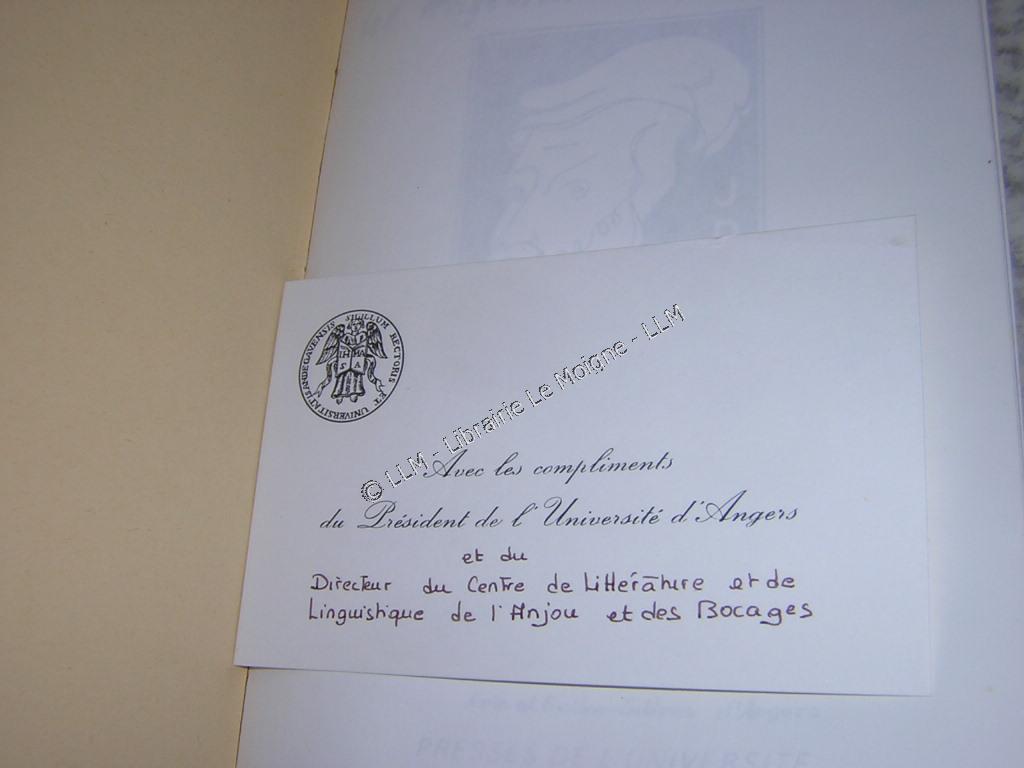 SIGILLUM RECTORIS ET UNIVERSITATIS ANDEGAVENSIS
© LLM - Librairie Le Moigne - LLM
Avec les compliments
du Président de l'Université d'Angers
et du
Directeur du Centre de Littérature et de
Linguistique de l'Anjou et des Bocages
PRESSES DE L'UNIVERSITÉ